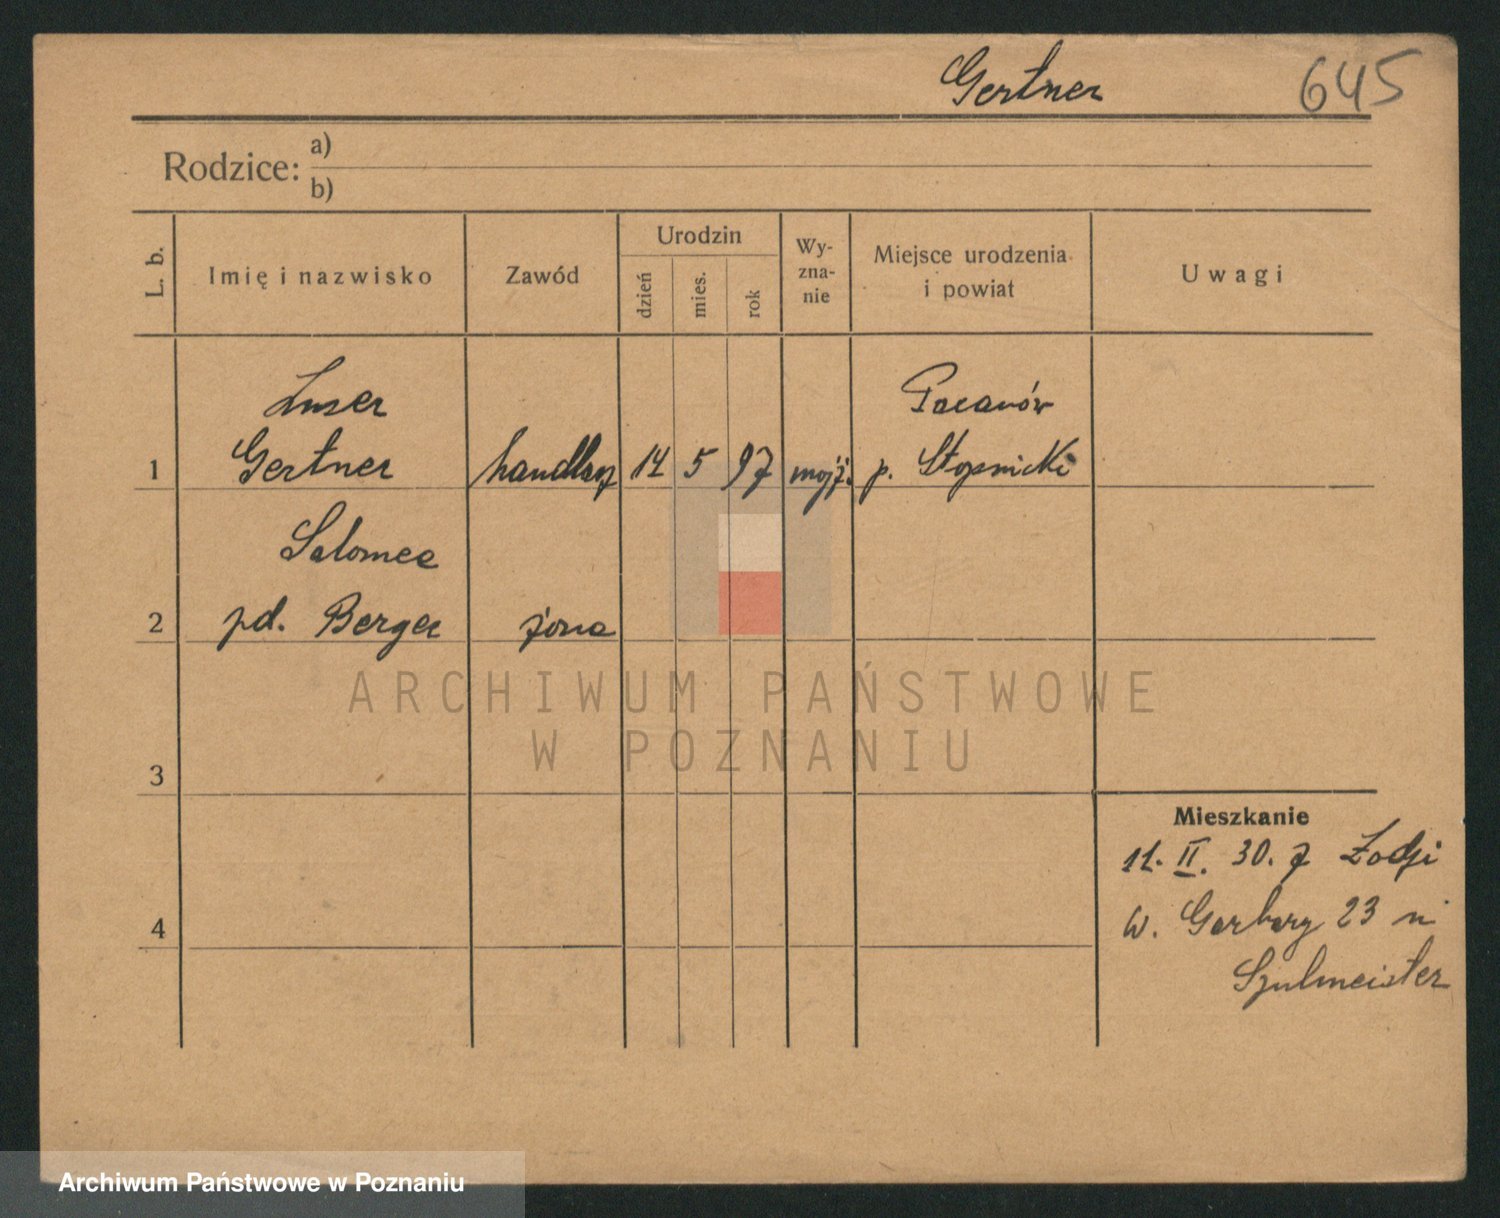 Gertner 645
Rodzice: a)
b)
L. b.
Imię i nazwisko
Zawód
Urodzin
dzień
mies.
rok
Wy-
zna-
nie
Miejsce urodzenia
i powiat
Uwagi
Luser
Pacanów
1 Gertner handlarz 14 5 97 mojż. p. Stopnicki
Salomea
2 pd. Berger żona
ARCHIWUM PAŃSTWOWE
W POZNANIU
3
Mieszkanie
11. II. 30. z Łodzi
4
w. Garbary 23 u
Szulmeister
Archiwum Państwowe w Poznaniu